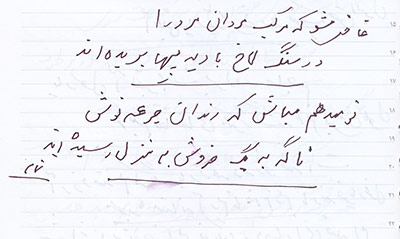 غافل مشو که مرکب مردان مرد را
در سنگلاخ بادیه پیها بریده‌اند
نومید هم مباش که رندان جرعه نوش
ناگه به یک خروش به منزل رسیده‌اند